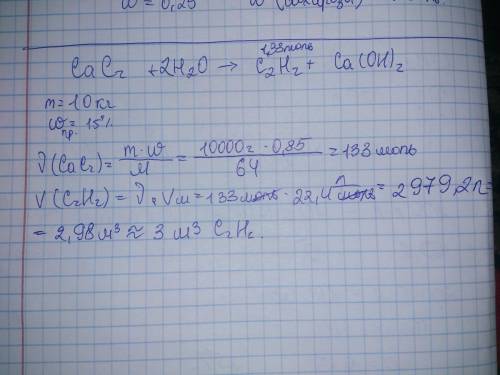 ω = 0,25 ω (сахарозы)
1,33моль
CaC₂ + 2H₂O → C₂H₂ + Ca(OH)₂
m = 10 кг
ω пр. = 15%
ν(CaC₂) = m·ω / M = 10000г · 0,85 / 64 = 133 моль
V(C₂H₂) = ν · Vм = 133 моль · 22,4 л/моль = 2979,2л =
= 2,98м³ ≈ 3 м³ C₂H₂.